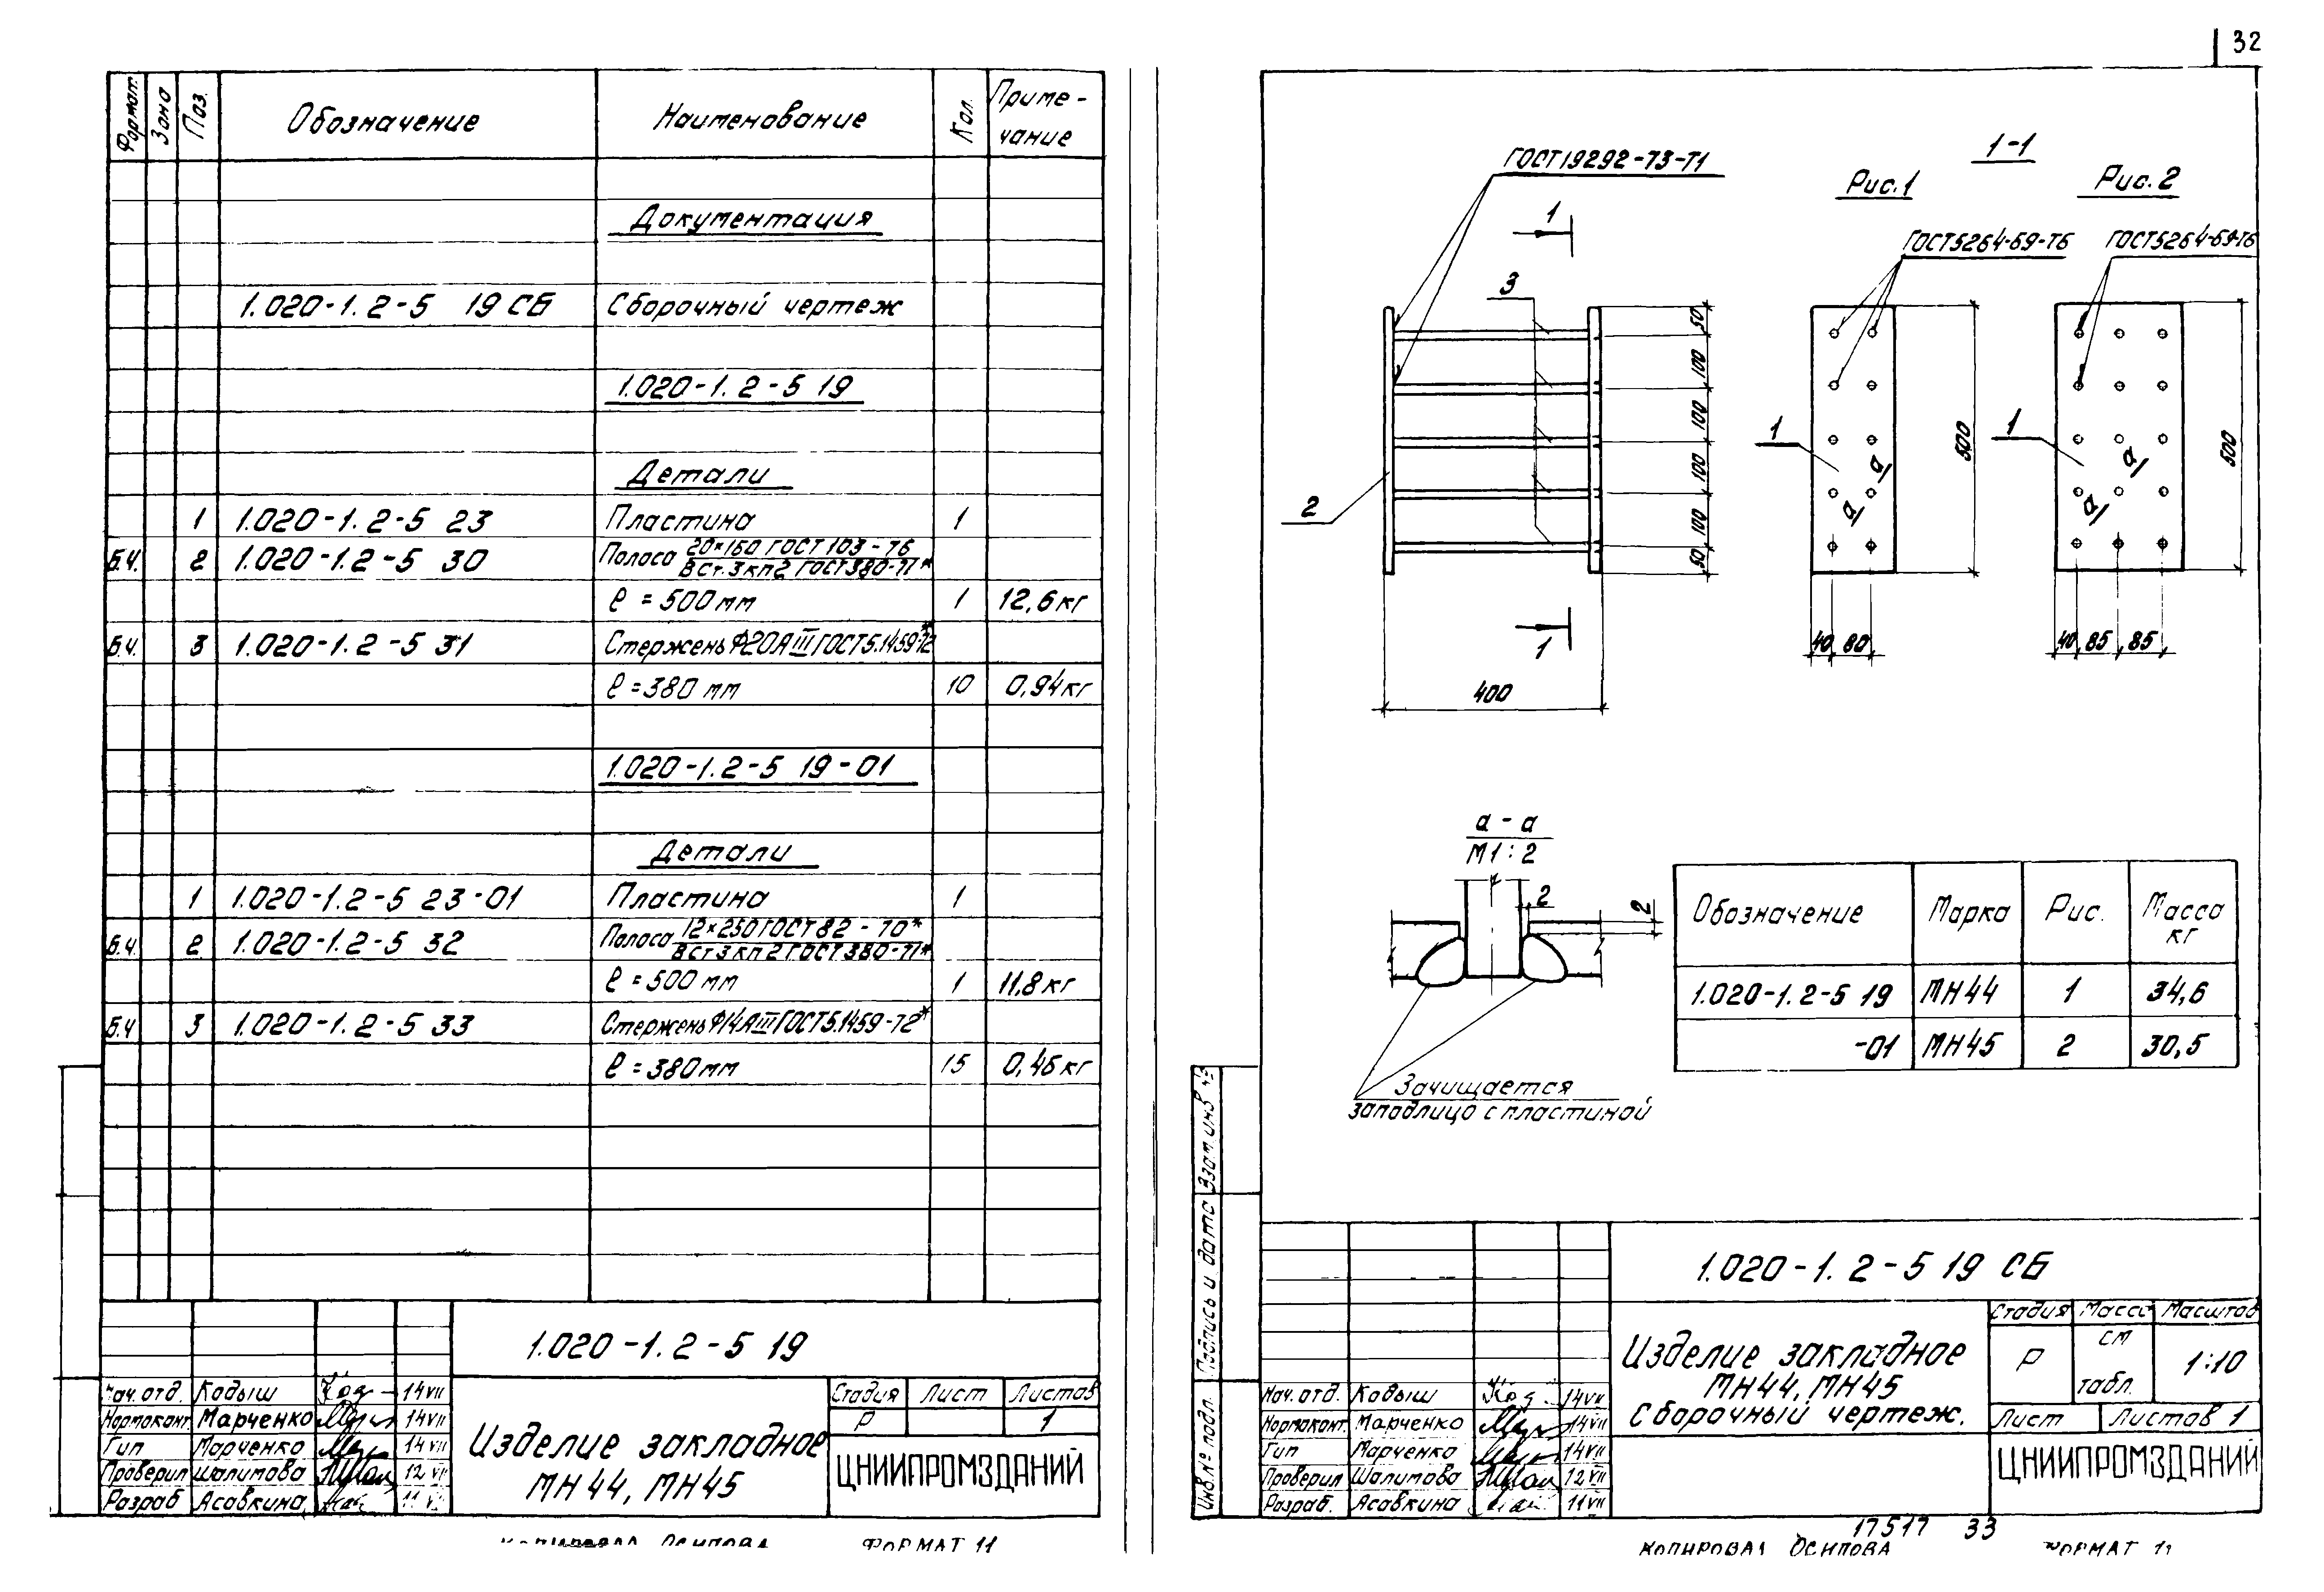 32
Формат. Зона Поз. Обозначение Наименование Кол. Приме-
чание
Документация
1.020-1.2-5 19 СБ Сборочный чертеж
1.020-1.2-5 19
Детали
1 1.020-1.2-5 23 Пластина 1
Б.Ч. 2 1.020-1.2-5 30 Полоса 20×160 ГОСТ 103-76
В Ст.3 кп2 ГОСТ 380-71*
ℓ = 500 мм 1 12,6 кг
Б.Ч. 3 1.020-1.2-5 31 Стержень Ф20АIII ГОСТ 5.1459-72*
ℓ = 380 мм 10 0,94 кг
1.020-1.2-5 19-01
Детали
1 1.020-1.2-5 23-01 Пластина 1
Б.Ч. 2 1.020-1.2-5 32 Полоса 12×250 ГОСТ 82-70*
В Ст 3 кп 2 ГОСТ 380-71*
ℓ = 500 мм 1 11,8 кг
Б.Ч 3 1.020-1.2-5 33 Стержень Ф14АIII ГОСТ 5.1459-72*
ℓ = 380 мм 15 0,46 кг
1.020-1.2-5 19
Нач. отд. Кодыш 14 VII
Нормоконт. Марченко 14 VII
Гип Марченко 14 VII
Проверил Шалимова 12 VII
Разраб Асавкина 11 VII
Изделие закладное
МН 44, МН45
Стадия Лист Листов
Р 1
ЦНИИПРОМЗДАНИЙ
КОПИРОВАЛ ОСИПОВА ФОРМАТ 11
1-1
ГОСТ 19292-73-Т1
Рис.1
Рис.2
ГОСТ 5264-69-Т6
ГОСТ 5264-69-Т6
1
3
2
1
1
1
50
100
100
100
100
50
400
а
а
500
40 80
а
а
500
40 85 85
а - а
М 1 : 2
2
2
Зачищается
заподлицо с пластиной
Обозначение Марка Рис. Масса
кг
1.020-1.2-5 19 МН44 1 34,6
-01 МН45 2 30,5
Взам. инв №
Подпись и дата
Инв. № подл.
1.020-1.2-5 19 СБ
Нач. отд. Кодыш 14 VII
Нормоконт. Марченко 14 VII
Гип Марченко 14 VII
Проверил Шалимова 12 VII
Разраб. Асавкина 11 VII
Изделие закладное
МН44, МН45
Сборочный чертеж.
Стадия Масса Масштаб
Р см
табл. 1:10
Лист Листов 1
ЦНИИПРОМЗДАНИЙ
17517 33
КОПИРОВАЛ ОСИПОВА ФОРМАТ 11